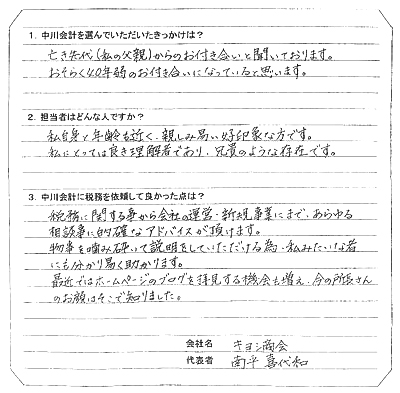 1. 中川会計を選んでいただいたきっかけは？
亡き先代(私の父親)からのお付き合いと聞いております。
おそらく40年弱のお付き合いになっていると思います。
2. 担当者はどんな人ですか？
私自身と年齢も近く、親しみ易い好印象な方です。
私にとっては良き理解者であり、兄貴のような存在です。
3. 中川会計に税務を依頼して良かった点は？
税務に関する事から会社の運営・新規事業にまで、あらゆる
相談事に的確なアドバイスが頂けます。
物事を噛み砕いて説明をしていただける為、私みたいな者
にも分かり易く助かります。
最近ではホームページのブログを拝見する機会も増え、今の所長さん
のお顔はそこで知りました。
会社名 キヨシ商会
代表者 南平 喜代和